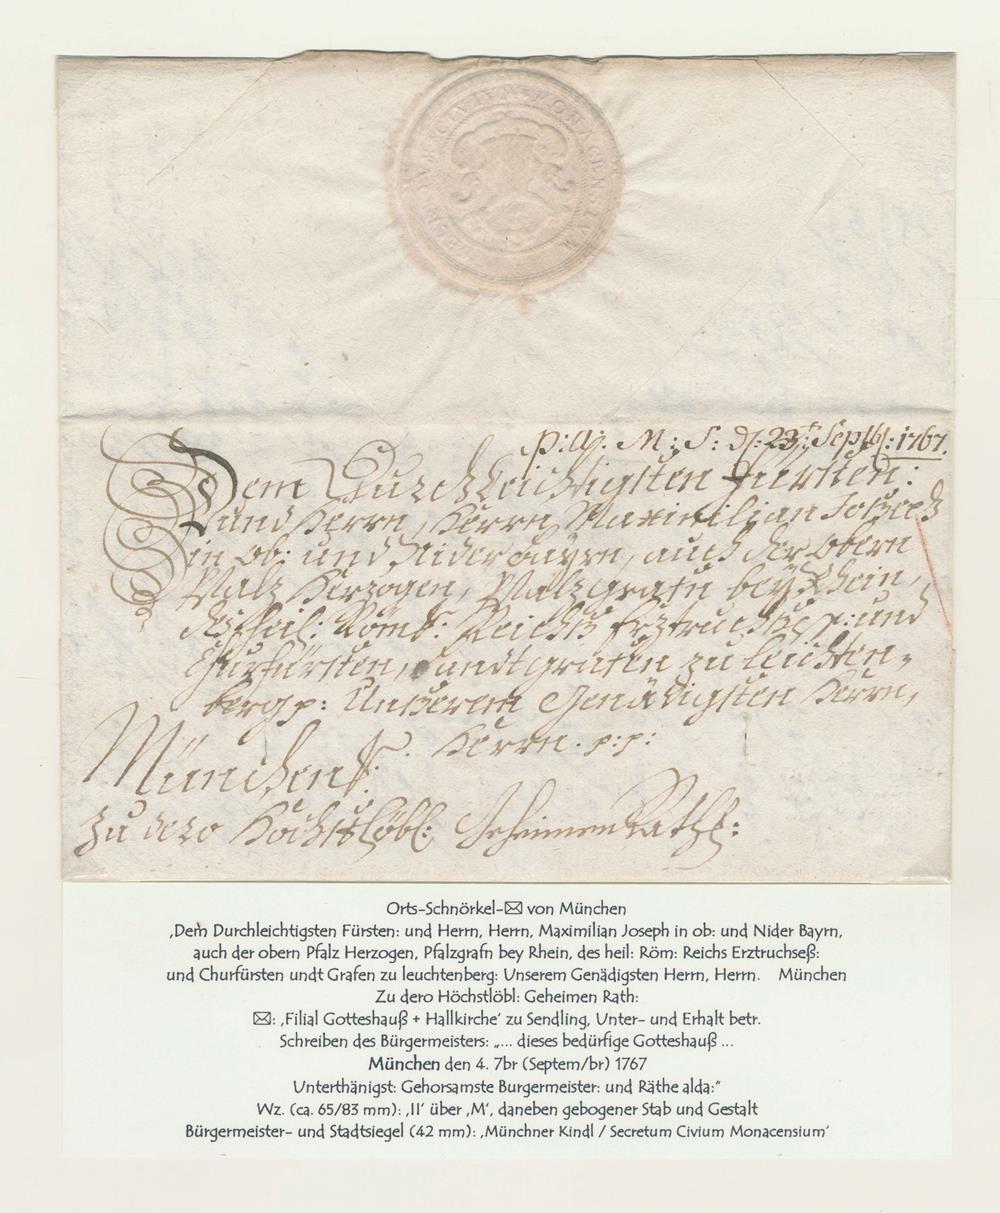 SECRETUM CIVIUM MONACENSIUM
p: M: S: d: 23t: Septbr: 1767.
Dem Durchleichtigsten Fürsten:
und Herrn, Herrn Maximilian Joseph
in ob: und Nider Bayrn, auch der obern
Pfalz Herzogen, Pfalzgrafn bey Rhein,
des heil: Röm: Reichs Erztruchseß p: und
Churfürsten, Landtgrafen zu leichten-
berg p: Unserem Genädigsten Herrn,
Herrn. p: p:
München
Zu dero Höchstlöbl: Geheimen Rath:
Orts-Schnörkel-✉ von München
‚Dem Durchleichtigsten Fürsten: und Herrn, Herrn, Maximilian Joseph in ob: und Nider Bayrn,
auch der obern Pfalz Herzogen, Pfalzgrafn bey Rhein, des heil: Röm: Reichs Erztruchseß:
und Churfürsten undt Grafen zu leuchtenberg: Unserem Genädigsten Herrn, Herrn. München
Zu dero Höchstlöbl: Geheimen Rath:
✉: ‚Filial Gotteshauß + Hallkirche‘ zu Sendling, Unter- und Erhalt betr.
Schreiben des Bürgermeisters: „... dieses bedürfige Gotteshauß ...
München den 4. 7br (Septem/br) 1767
Unterthänigst: Gehorsamste Burgermeister: und Räthe alda:“
Wz. (ca. 65/83 mm): ‚II‘ über ‚M‘, daneben gebogener Stab und Gestalt
Bürgermeister- und Stadtsiegel (42 mm): ‚Münchner Kindl / Secretum Civium Monacensium‘